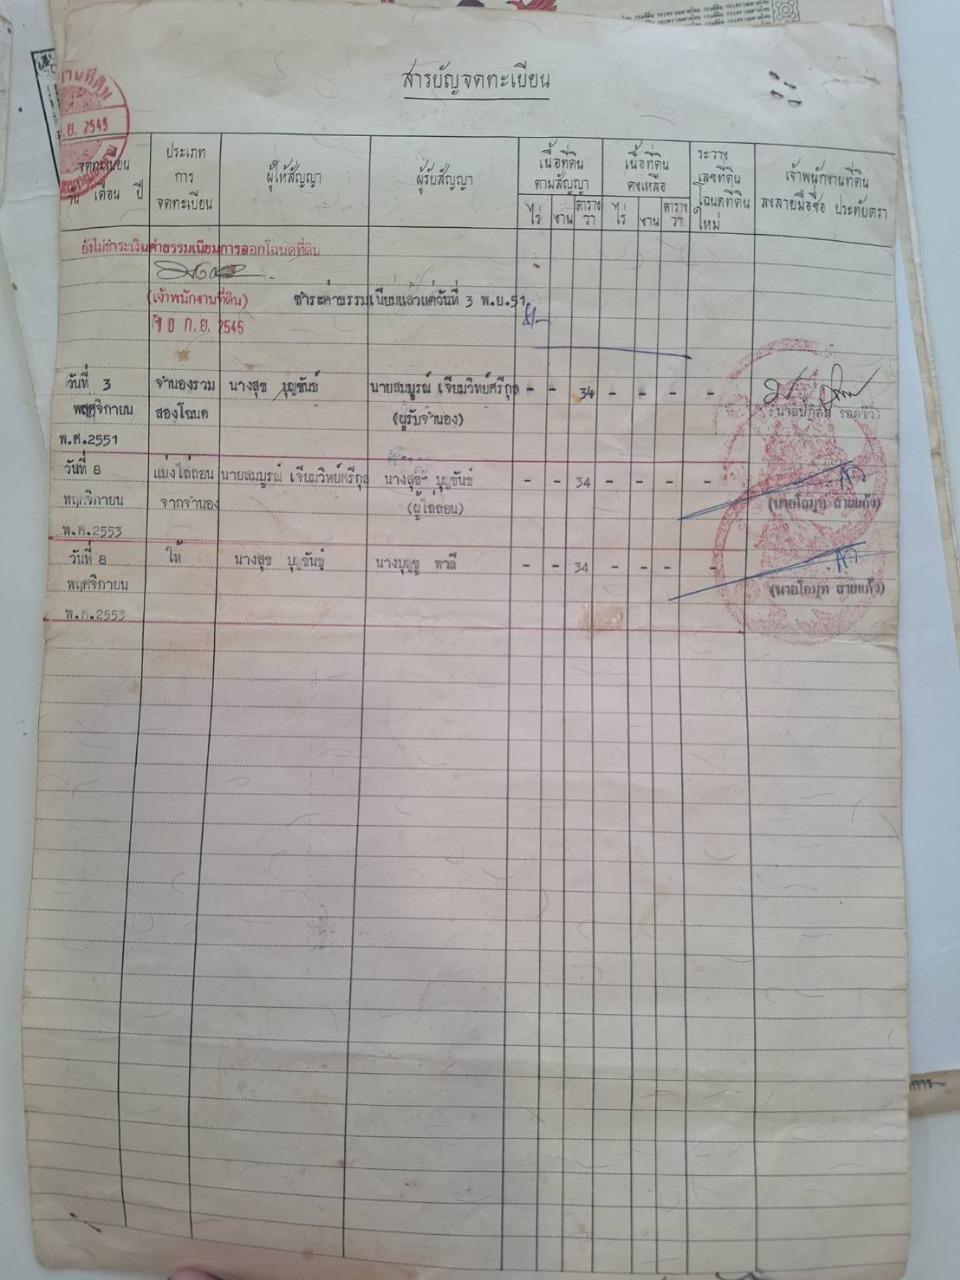 สารบัญจดทะเบียน
จดทะเบียน วัน เดือน ปี
ประเภทการจดทะเบียน
ผู้ให้สัญญา
ผู้รับสัญญา
เนื้อที่ดินตามสัญญา
ไร่ งาน ตารางวา
เนื้อที่ดินคงเหลือ
ไร่ งาน ตารางวา
ระวาง เลขที่ดิน โฉนดที่ดินใหม่
เจ้าพนักงานที่ดิน ลงลายมือชื่อ ประทับตรา
ยังไม่ชำระเงินค่าธรรมเนียมการออกโฉนดที่ดิน
(เจ้าพนักงานที่ดิน)
ชำระค่าธรรมเนียมแล้วแต่วันที่ 3 พ.ย.51
ก.ย. 2545
วันที่ 3 จำนองรวม นางสุข บุญขันธ์ นายสมบูรณ์ เจียมวิทย์ศรีกุล - - 34 - - - -
พฤศจิกายน สองโฉนด (ผู้รับจำนอง)
พ.ศ.2551
วันที่ 8 แบ่งไถ่ถอน นายสมบูรณ์ เจียมวิทย์ศรีกุล นางสุข บุญขันธ์ - - 34 - - - -
พฤศจิกายน จากจำนอง (ผู้ไถ่ถอน) (นายโกมุท สายแก้ว)
พ.ศ.2553
วันที่ 8 ให้ นางสุข บุญขันธ์ นางบุญชู พาลี - - 34 - - - -
พฤศจิกายน (นายโกมุท สายแก้ว)
พ.ศ.2553